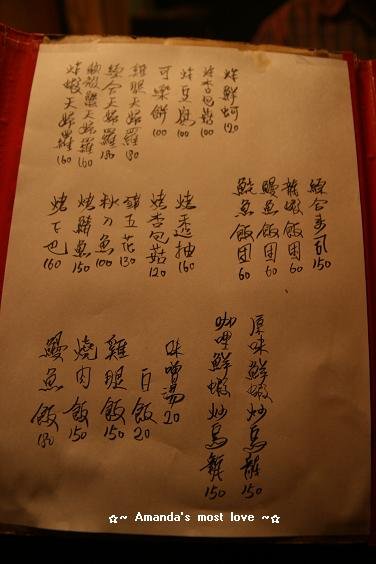 炸鮮蚵120
炸杏包菇100
炸豆腐100
可樂餅100
雞腿天婦羅130
綜合天婦羅180
天婦羅160
炸蝦天婦羅160
綜合壽司150
龍蝦飯団60
鰻魚飯団60
鮭魚飯団60
烤透抽160
烤杏包菇120
豬五花130
秋刀魚100
烤鯖魚150
烤下巴160
原味鮮蝦炒烏龍150
咖哩鮮蝦炒烏龍150
味噌湯20
白飯20
雞腿飯150
燒肉飯150
鰻魚飯180
☆~ Amanda's most love ~☆